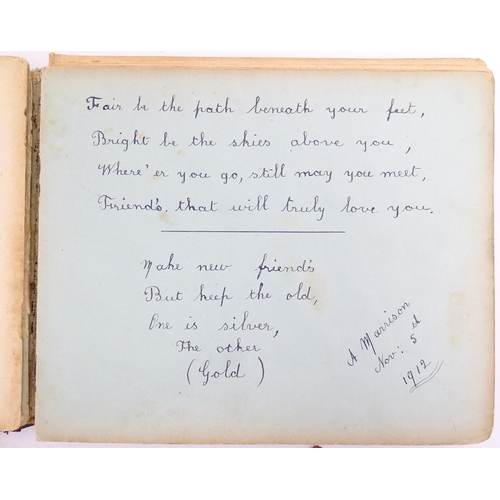 Fair be the path beneath your feet,
Bright be the skies above you,
Where'er you go, still may you meet,
Friend's, that will truly love you.
Make new friend's
But keep the old,
One is silver,
The other
(Gold)
A Marrison
Nov: 5th
1912